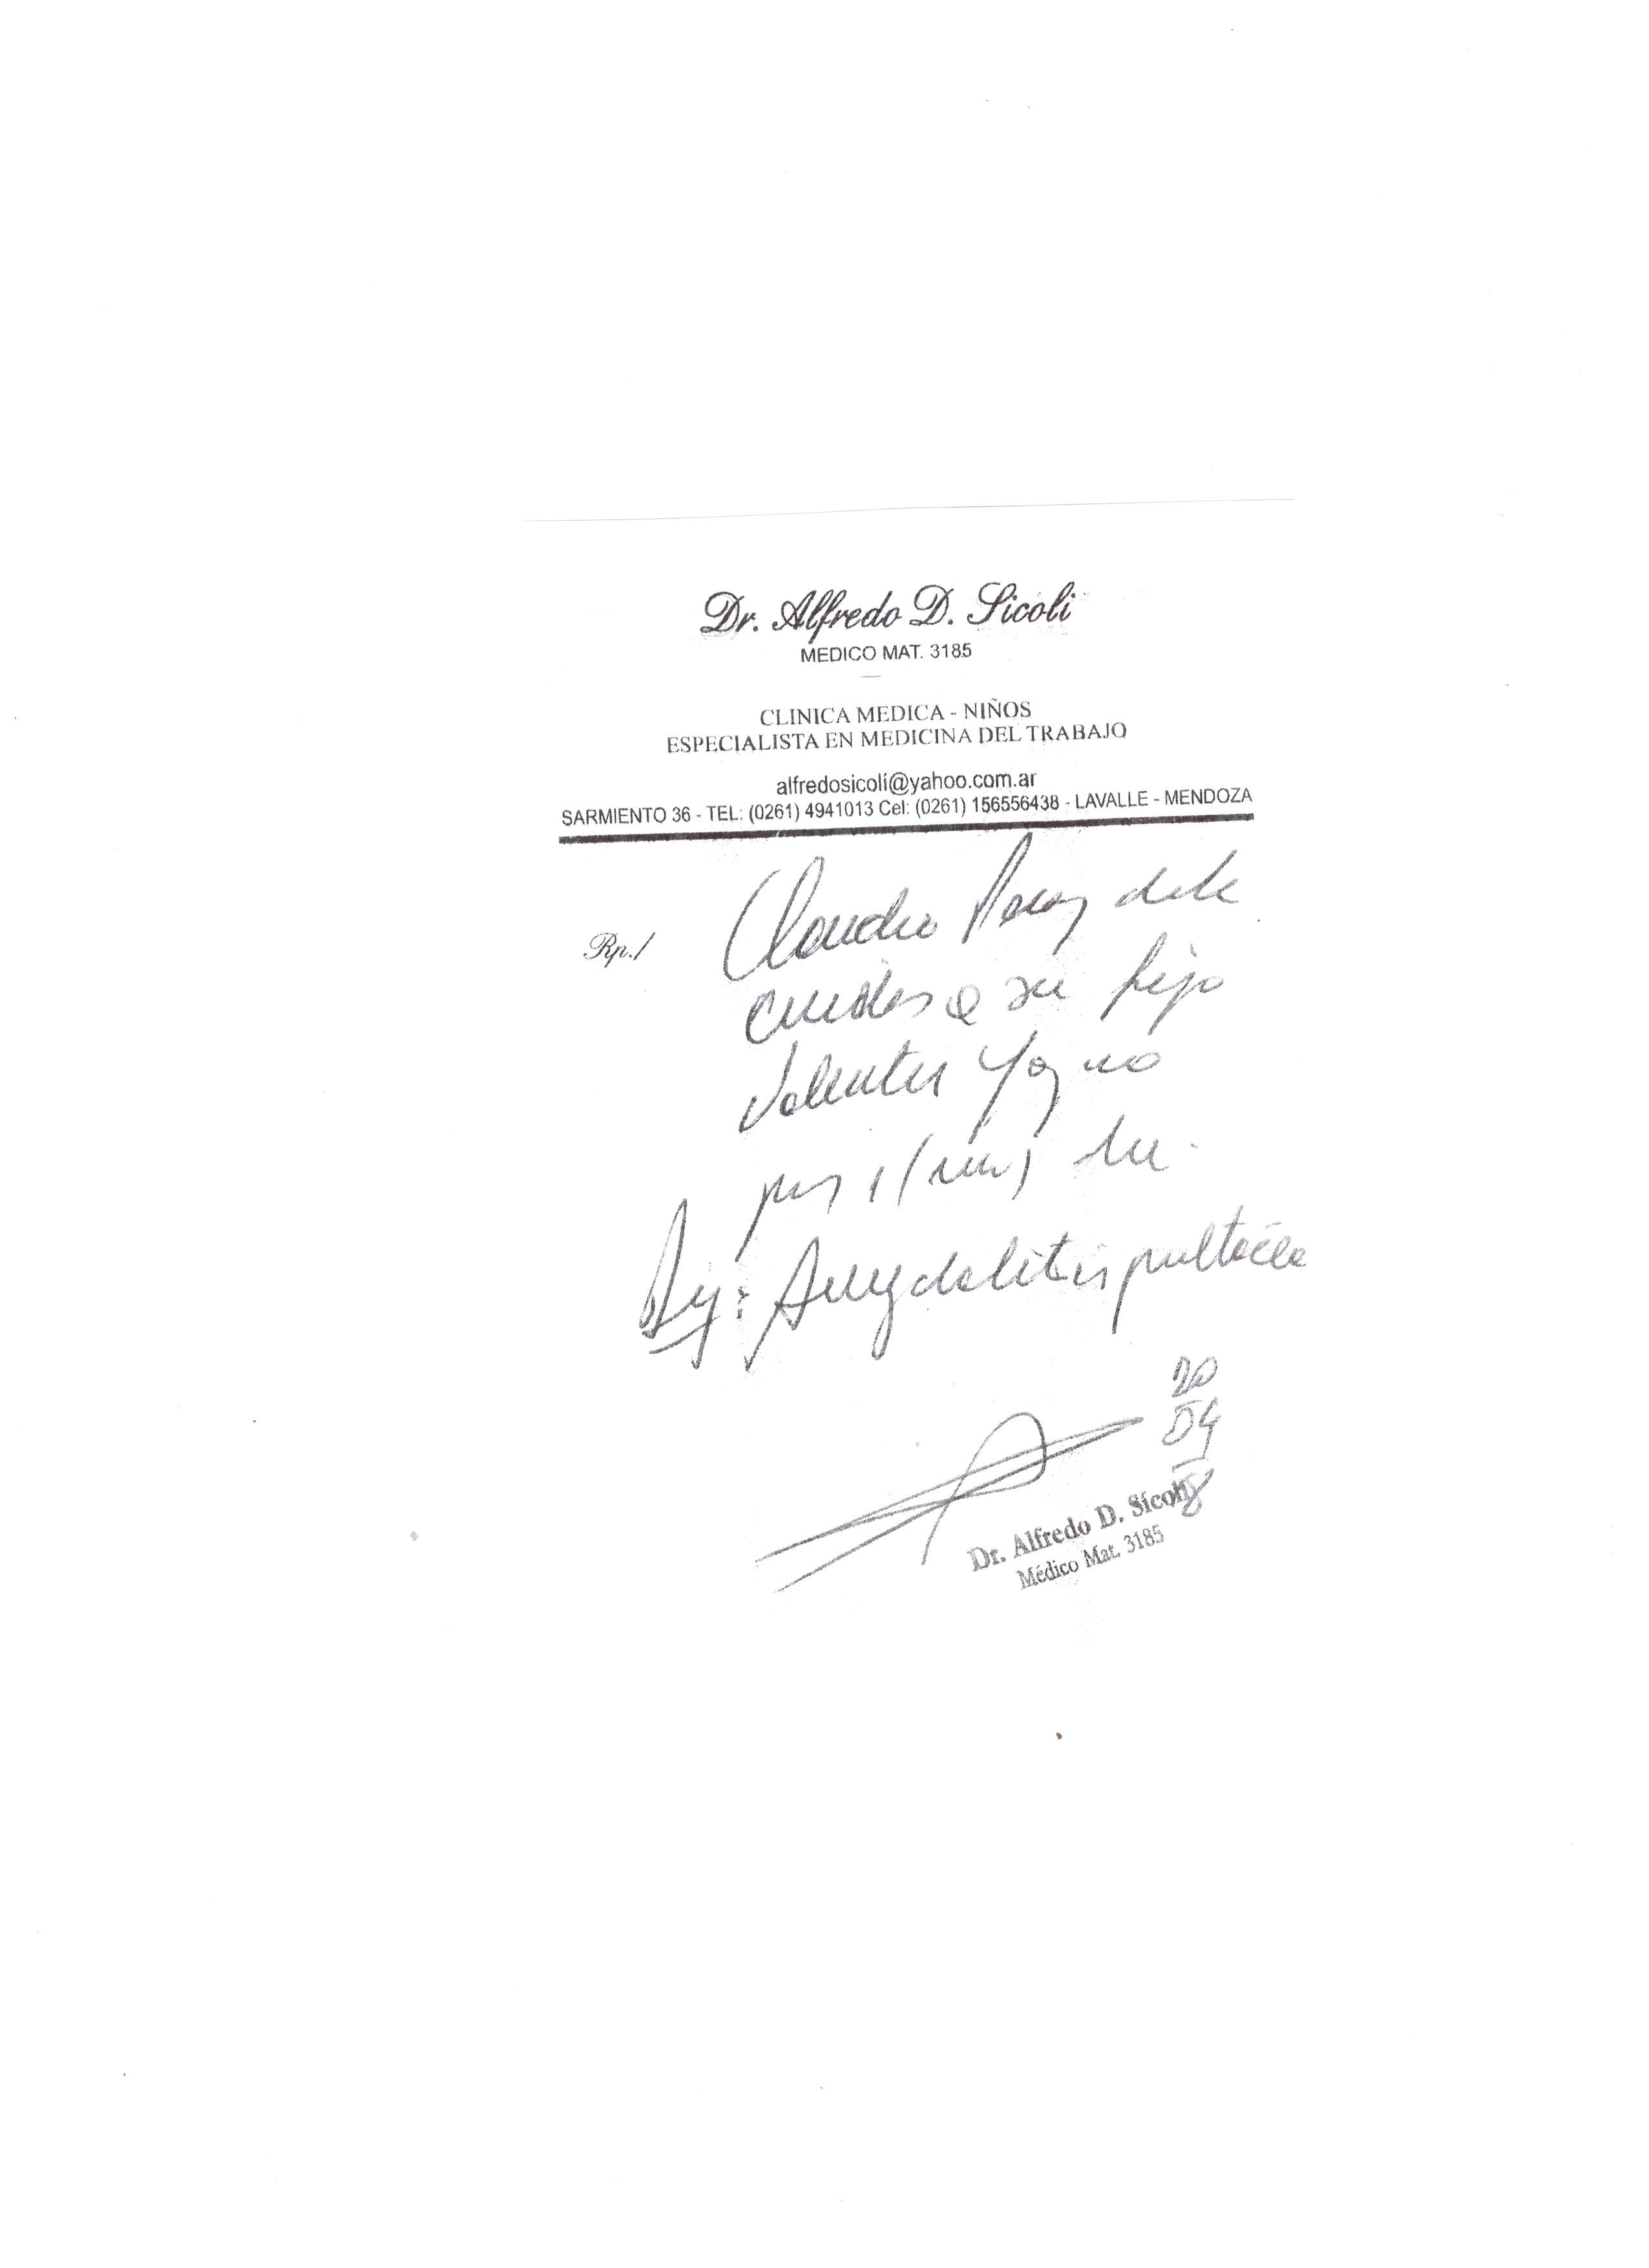 Dr. Alfredo D. Sicoli
MEDICO MAT. 3185
CLINICA MEDICA - NIÑOS
ESPECIALISTA EN MEDICINA DEL TRABAJO
alfredosicoli@yahoo.com.ar
SARMIENTO 36 - TEL: (0261) 4941013 Cel: (0261) 156556438 - LAVALLE - MENDOZA
Rp./
Claudio debe
cuidar a su hijo
por 1 (un)
Amigdalitis pultácea
20
04
18
Dr. Alfredo D. Sicoli
Médico Mat. 3185